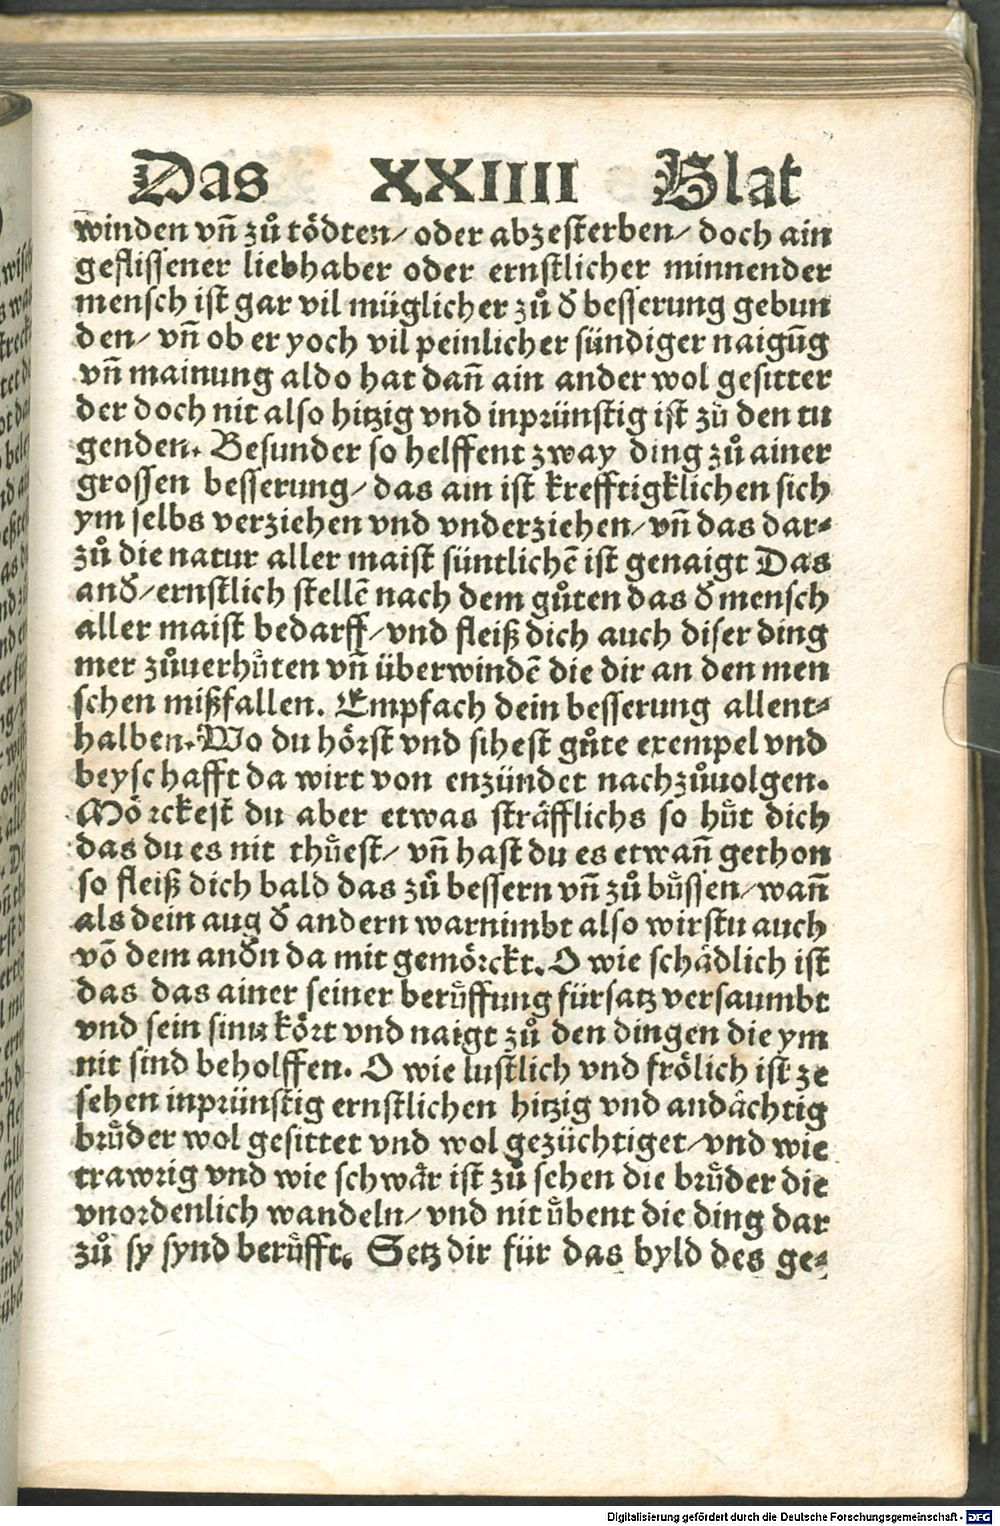 Das XXIIII Blat
winden vñ zů tödten/ oder abzesterben/ doch ain
geflissener liebhaber oder ernstlicher minnender
mensch ist gar vil müglicher zů ð besserung gebun
den/ vñ ob er yoch vil peinlicher sündiger naigūg
vñ mainung aldo hat dañ ain ander wol gesitter
der doch nit also hitzig vnd inprünstig ist zů den tu
genden. Besunder so helffent zway ding zů ainer
grossen besserung/ das ain ist krefftigklichen sich
ym selbs verziehen vnd vnderziehen/ vñ das dar-
zů die natur aller maist süntlichē ist genaigt Das
anð/ ernstlich stellē nach dem gůten das ð mensch
aller maist bedarff/ vnd fleiß dich auch diser ding
mer zůuerhůten vñ überwindē die dir an den men
schen mißfallen. Empfach dein besserung allent-
halben. Wo du hörst vnd sihest gůte exempel vnd
beyschafft da wirt von enzündet nachzůuolgen.
Mörckest du aber etwas sträfflichs so hůt dich
das du es nit thůest/ vñ hast du es etwañ gethon
so fleiß dich bald das zů bessern vñ zů bůssen/ wañ
als dein aug ð andern warnimbt also wirstu auch
võ dem anðn da mit gemörckt. O wie schädlich ist
das das ainer seiner berůffung fürsatz versaumbt
vnd sein sinn kört vnd naigt zů den dingen die ym
nit sind beholffen. O wie lustlich vnd frölich ist ze
sehen inprünstig ernstlichen hitzig vnd andächtig
brůder wol gesittet vnd wol gezüchtiget/ vnd wie
trawrig vnd wie schwär ist zů sehen die brůder die
vnordenlich wandeln/ vnd nit ůbent die ding dar
zů sy synd berůfft. Setz dir für das byld des ge-
Digitalisierung gefördert durch die Deutsche Forschungsgemeinschaft - DFG